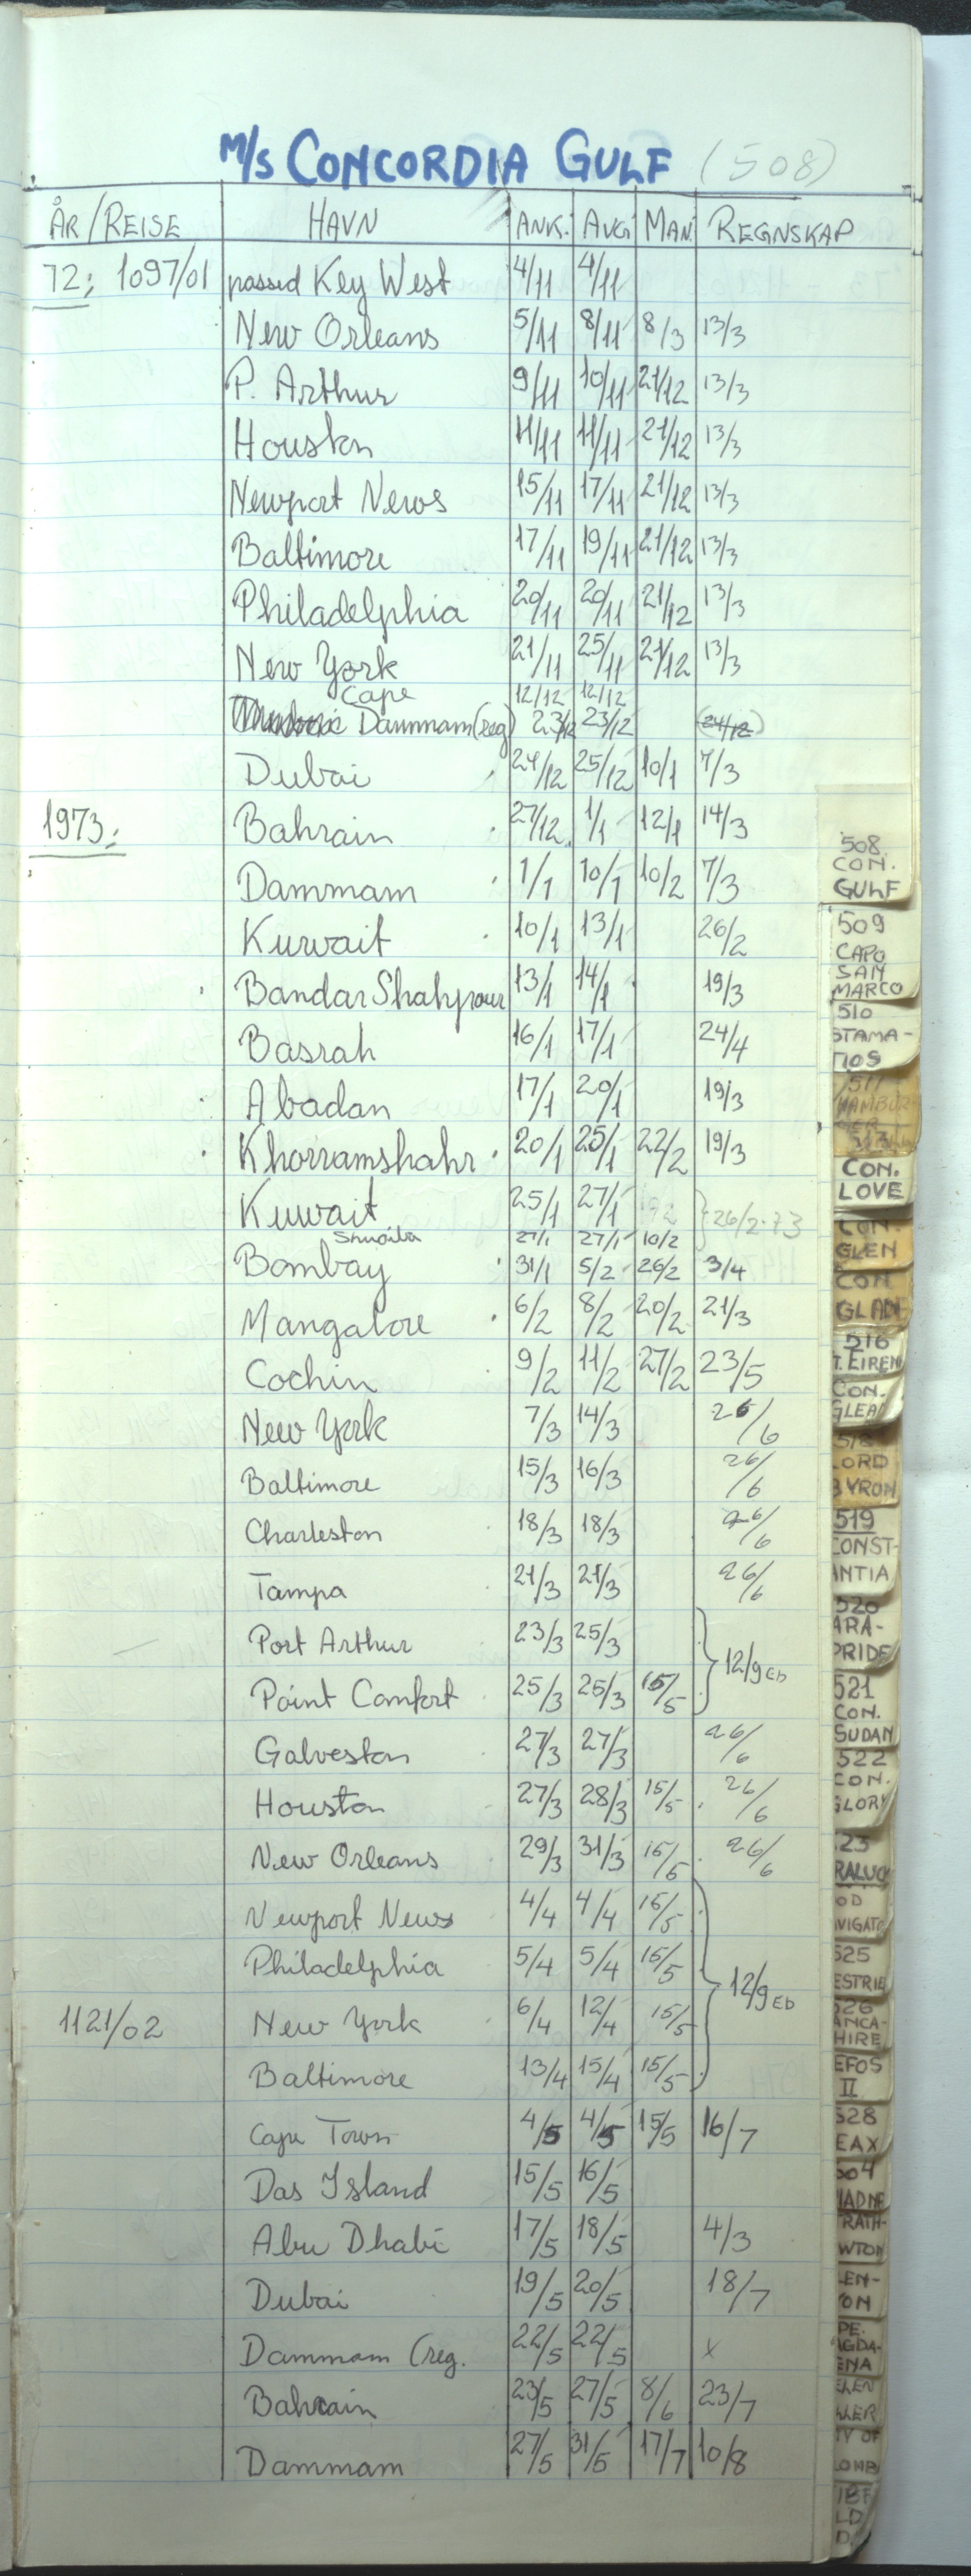 M/S CONCORDIA GULF (508)
ÅR/REISE HAVN ANK. AVG. MAN. REGNSKAP
72; 1097/01 passed Key West 4/11 4/11
New Orleans 5/11 8/11 8/3 13/3
P. Arthur 9/11 10/11 21/12 13/3
Houston 11/11 11/11 21/12 13/3
Newport News 15/11 17/11 21/12 13/3
Baltimore 17/11 19/11 21/12 13/3
Philadelphia 20/11 20/11 21/12 13/3
New York 21/11 25/11 21/12 13/3
Cape 12/12 12/12
Dammam (reg) 23/12 23/12 (24/12)
Dubai 24/12 25/12 10/1 7/3
1973: Bahrain 27/12 1/1 12/1 14/3
Dammam 1/1 10/1 10/2 7/3
Kuwait 10/1 13/1 26/2
Bandar Shahpour 13/1 14/1 19/3
Basrah 16/1 17/1 24/4
Abadan 17/1 20/1 19/3
Khorramshahr 20/1 25/1 22/2 19/3
Kuwait 25/1 27/1 26/2-73
Shuaiba 27/1 27/1 10/2
Bombay 31/1 5/2 26/2 3/4
Mangalore 6/2 8/2 20/2 21/3
Cochin 9/2 11/2 27/2 23/5
New York 7/3 14/3 26/6
Baltimore 15/3 16/3 26/6
Charleston 18/3 18/3 26/6
Tampa 21/3 21/3 26/6
Port Arthur 23/3 25/3
12/9 ED
Point Comfort 25/3 25/3 15/5
Galveston 27/3 27/3 26/6
Houston 27/3 28/3 15/5 26/6
New Orleans 29/3 31/3 15/5 26/6
Newport News 4/4 4/4 15/5
Philadelphia 5/4 5/4 15/5
12/9 ED
1121/02 New York 6/4 12/4 15/5
Baltimore 13/4 15/4 15/5
Cape Town 4/5 4/5 15/5 16/7
Das Island 15/5 16/5
Abu Dhabi 17/5 18/5 4/3
Dubai 19/5 20/5 18/7
Dammam (reg. 22/5 22/5 x
Bahrain 23/5 27/5 8/6 23/7
Dammam 27/5 31/5 17/7 10/8
508
CON.
GULF
509
CAPO
SAN
MARCO
510
STAMA-
TIOS
511
CON.
LOVE
CON.
GLEN
CON.
516
CON.
519
CONST-
ANTIA
520
ARA-
PRIDE
521
CON.
SUDAN
522
CON.
GLORY
525
526
528